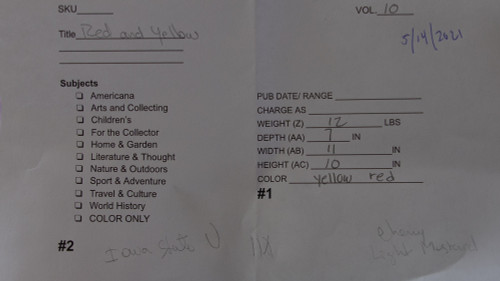 SKU
VOL. 10
5/14/2021
Title Red and Yellow
Subjects
Americana
Arts and Collecting
Children's
For the Collector
Home & Garden
Literature & Thought
Nature & Outdoors
Sport & Adventure
Travel & Culture
World History
COLOR ONLY
PUB DATE/ RANGE
CHARGE AS
WEIGHT (Z) 12 LBS
DEPTH (AA) 7 IN
WIDTH (AB) 11 IN
HEIGHT (AC) 10 IN
COLOR yellow red
#1
#2
Iowa State U
Light